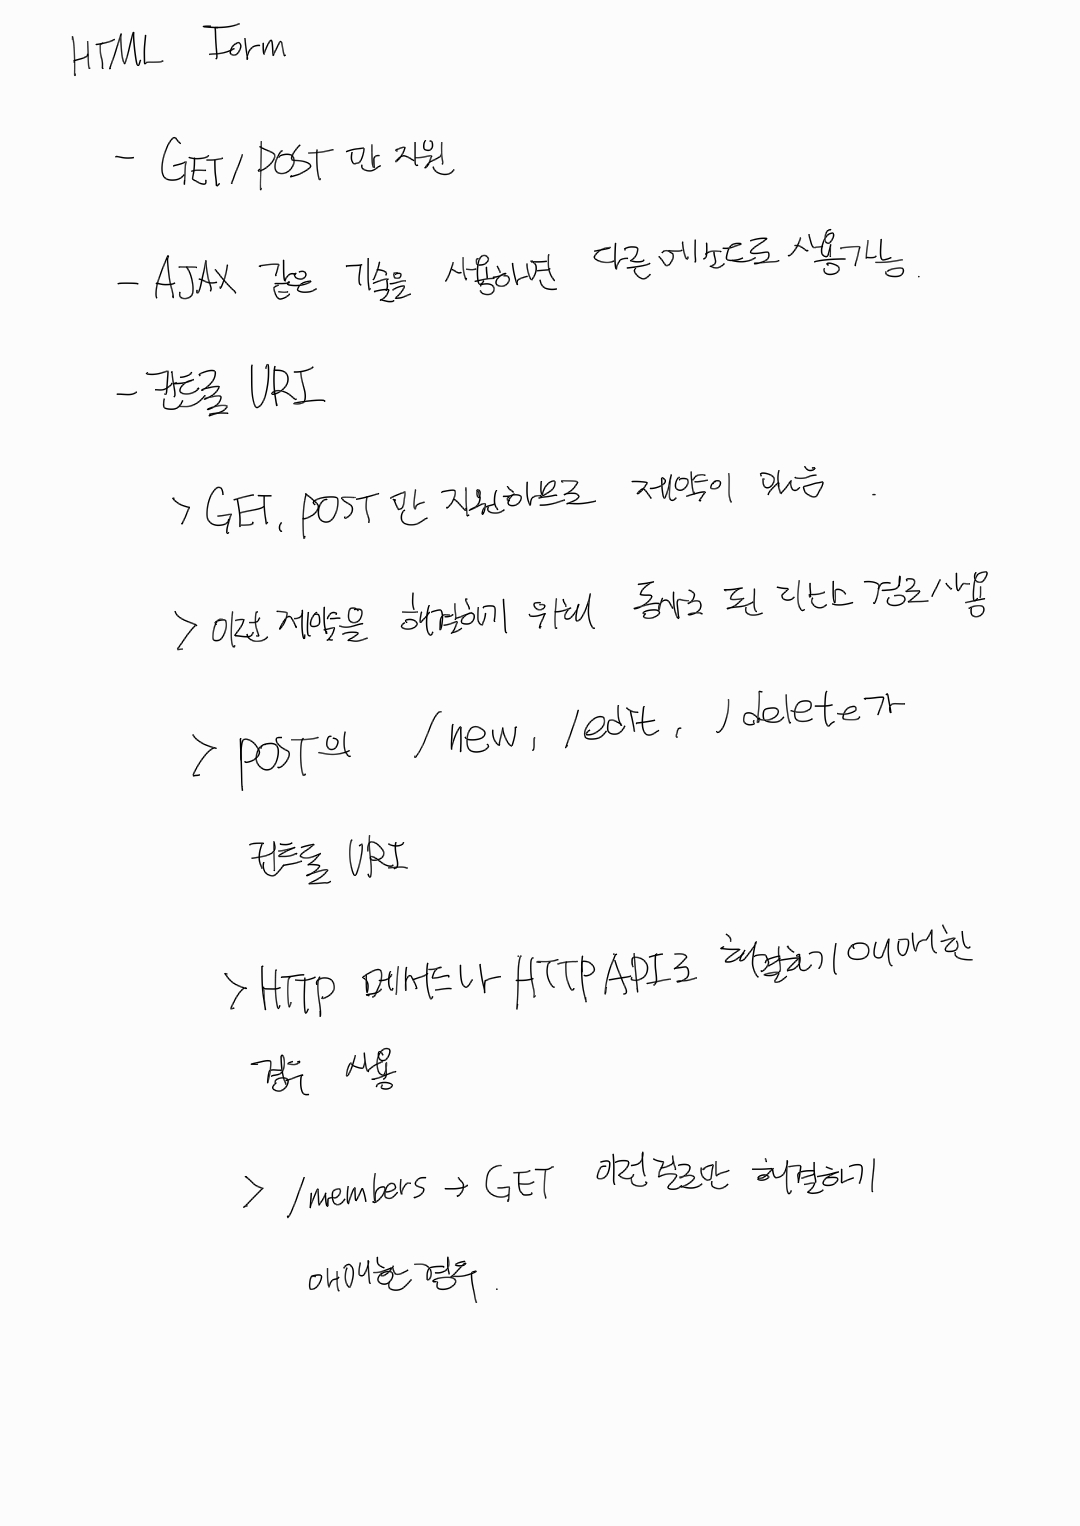 HTML Form
- GET/POST 만 지원
- AJAX 같은 기술을 사용하면 다른 메소드로 사용가능.
- 컨트롤 URI
> GET, POST 만 지원하므로 제약이 있음.
> 이런 제약을 해결하기 위해 동사로 된 리소스 경로 사용
> POST의 /new, /edit, /delete가
컨트롤 URI
> HTTP 메서드나 HTTP API로 해결하기 애매한
경우 사용
> /members → GET 이런걸로만 해결하기
애매한 경우.